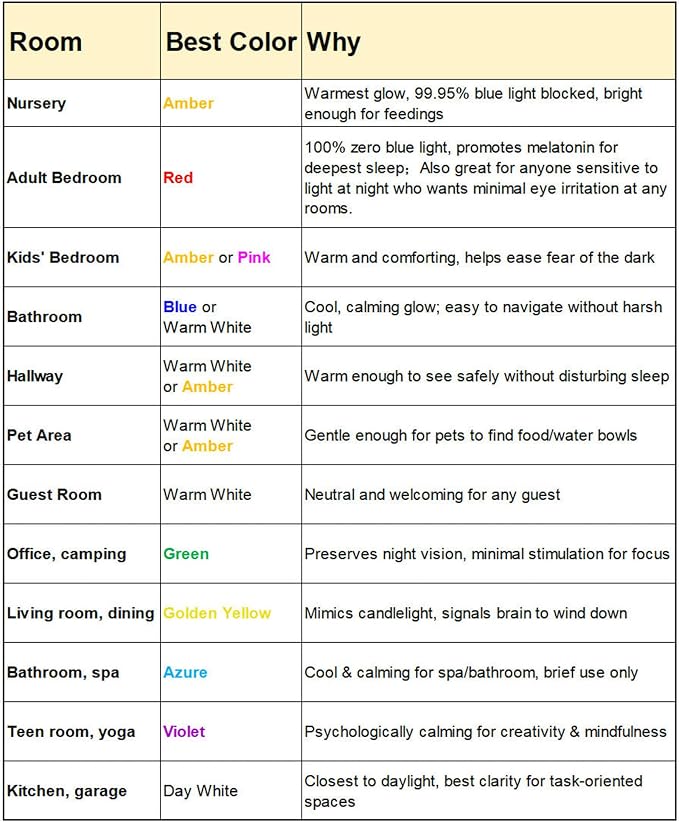 Room Best Color Why
Nursery
Amber
Warmest glow, 99.95% blue light blocked, bright
enough for feedings
Adult Bedroom
Red
100% zero blue light, promotes melatonin for
deepest sleep；Also great for anyone sensitive to
light at night who wants minimal eye irritation at any
rooms.
Kids' Bedroom
Amber or Pink
Warm and comforting, helps ease fear of the dark
Bathroom
Blue or
Warm White
Cool, calming glow; easy to navigate without harsh
light
Hallway
Warm White
or Amber
Warm enough to see safely without disturbing sleep
Pet Area
Warm White
or Amber
Gentle enough for pets to find food/water bowls
Guest Room
Warm White
Neutral and welcoming for any guest
Office, camping
Green
Preserves night vision, minimal stimulation for focus
Living room, dining
Golden Yellow
Mimics candlelight, signals brain to wind down
Bathroom, spa
Azure
Cool & calming for spa/bathroom, brief use only
Teen room, yoga
Violet
Psychologically calming for creativity & mindfulness
Kitchen, garage
Day White
Closest to daylight, best clarity for task-oriented
spaces